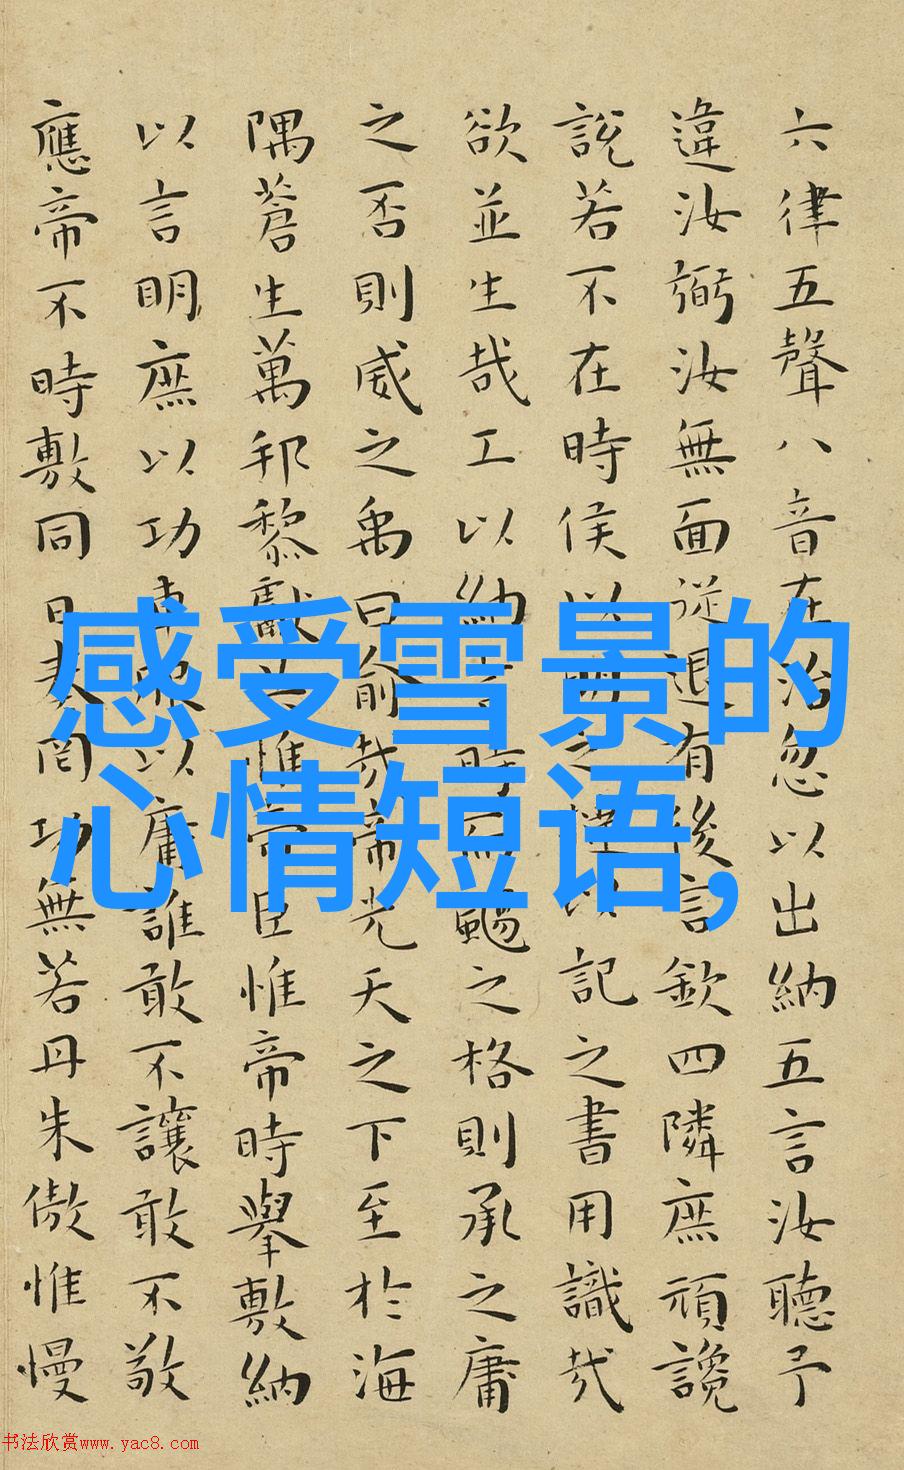 六律五聲八音在治忽以出納五言汝聽予
違汝弼汝無面從退有後言欽四隣庶頑讒
說若不在時侯以明之撻以記之書用識哉
欲並生哉工以納言時而颺之格則承之庸
之否則威之禹曰俞哉帝光天之下至於海
隅蒼生萬邦黎獻共惟帝臣惟帝時舉敷納
以言明庶以功車服以庸誰敢不讓敢不敬
應帝不時敷同日奏罔功無若丹朱傲惟慢
感受雪景的
心情短语,
书法欣赏www.yac8.com